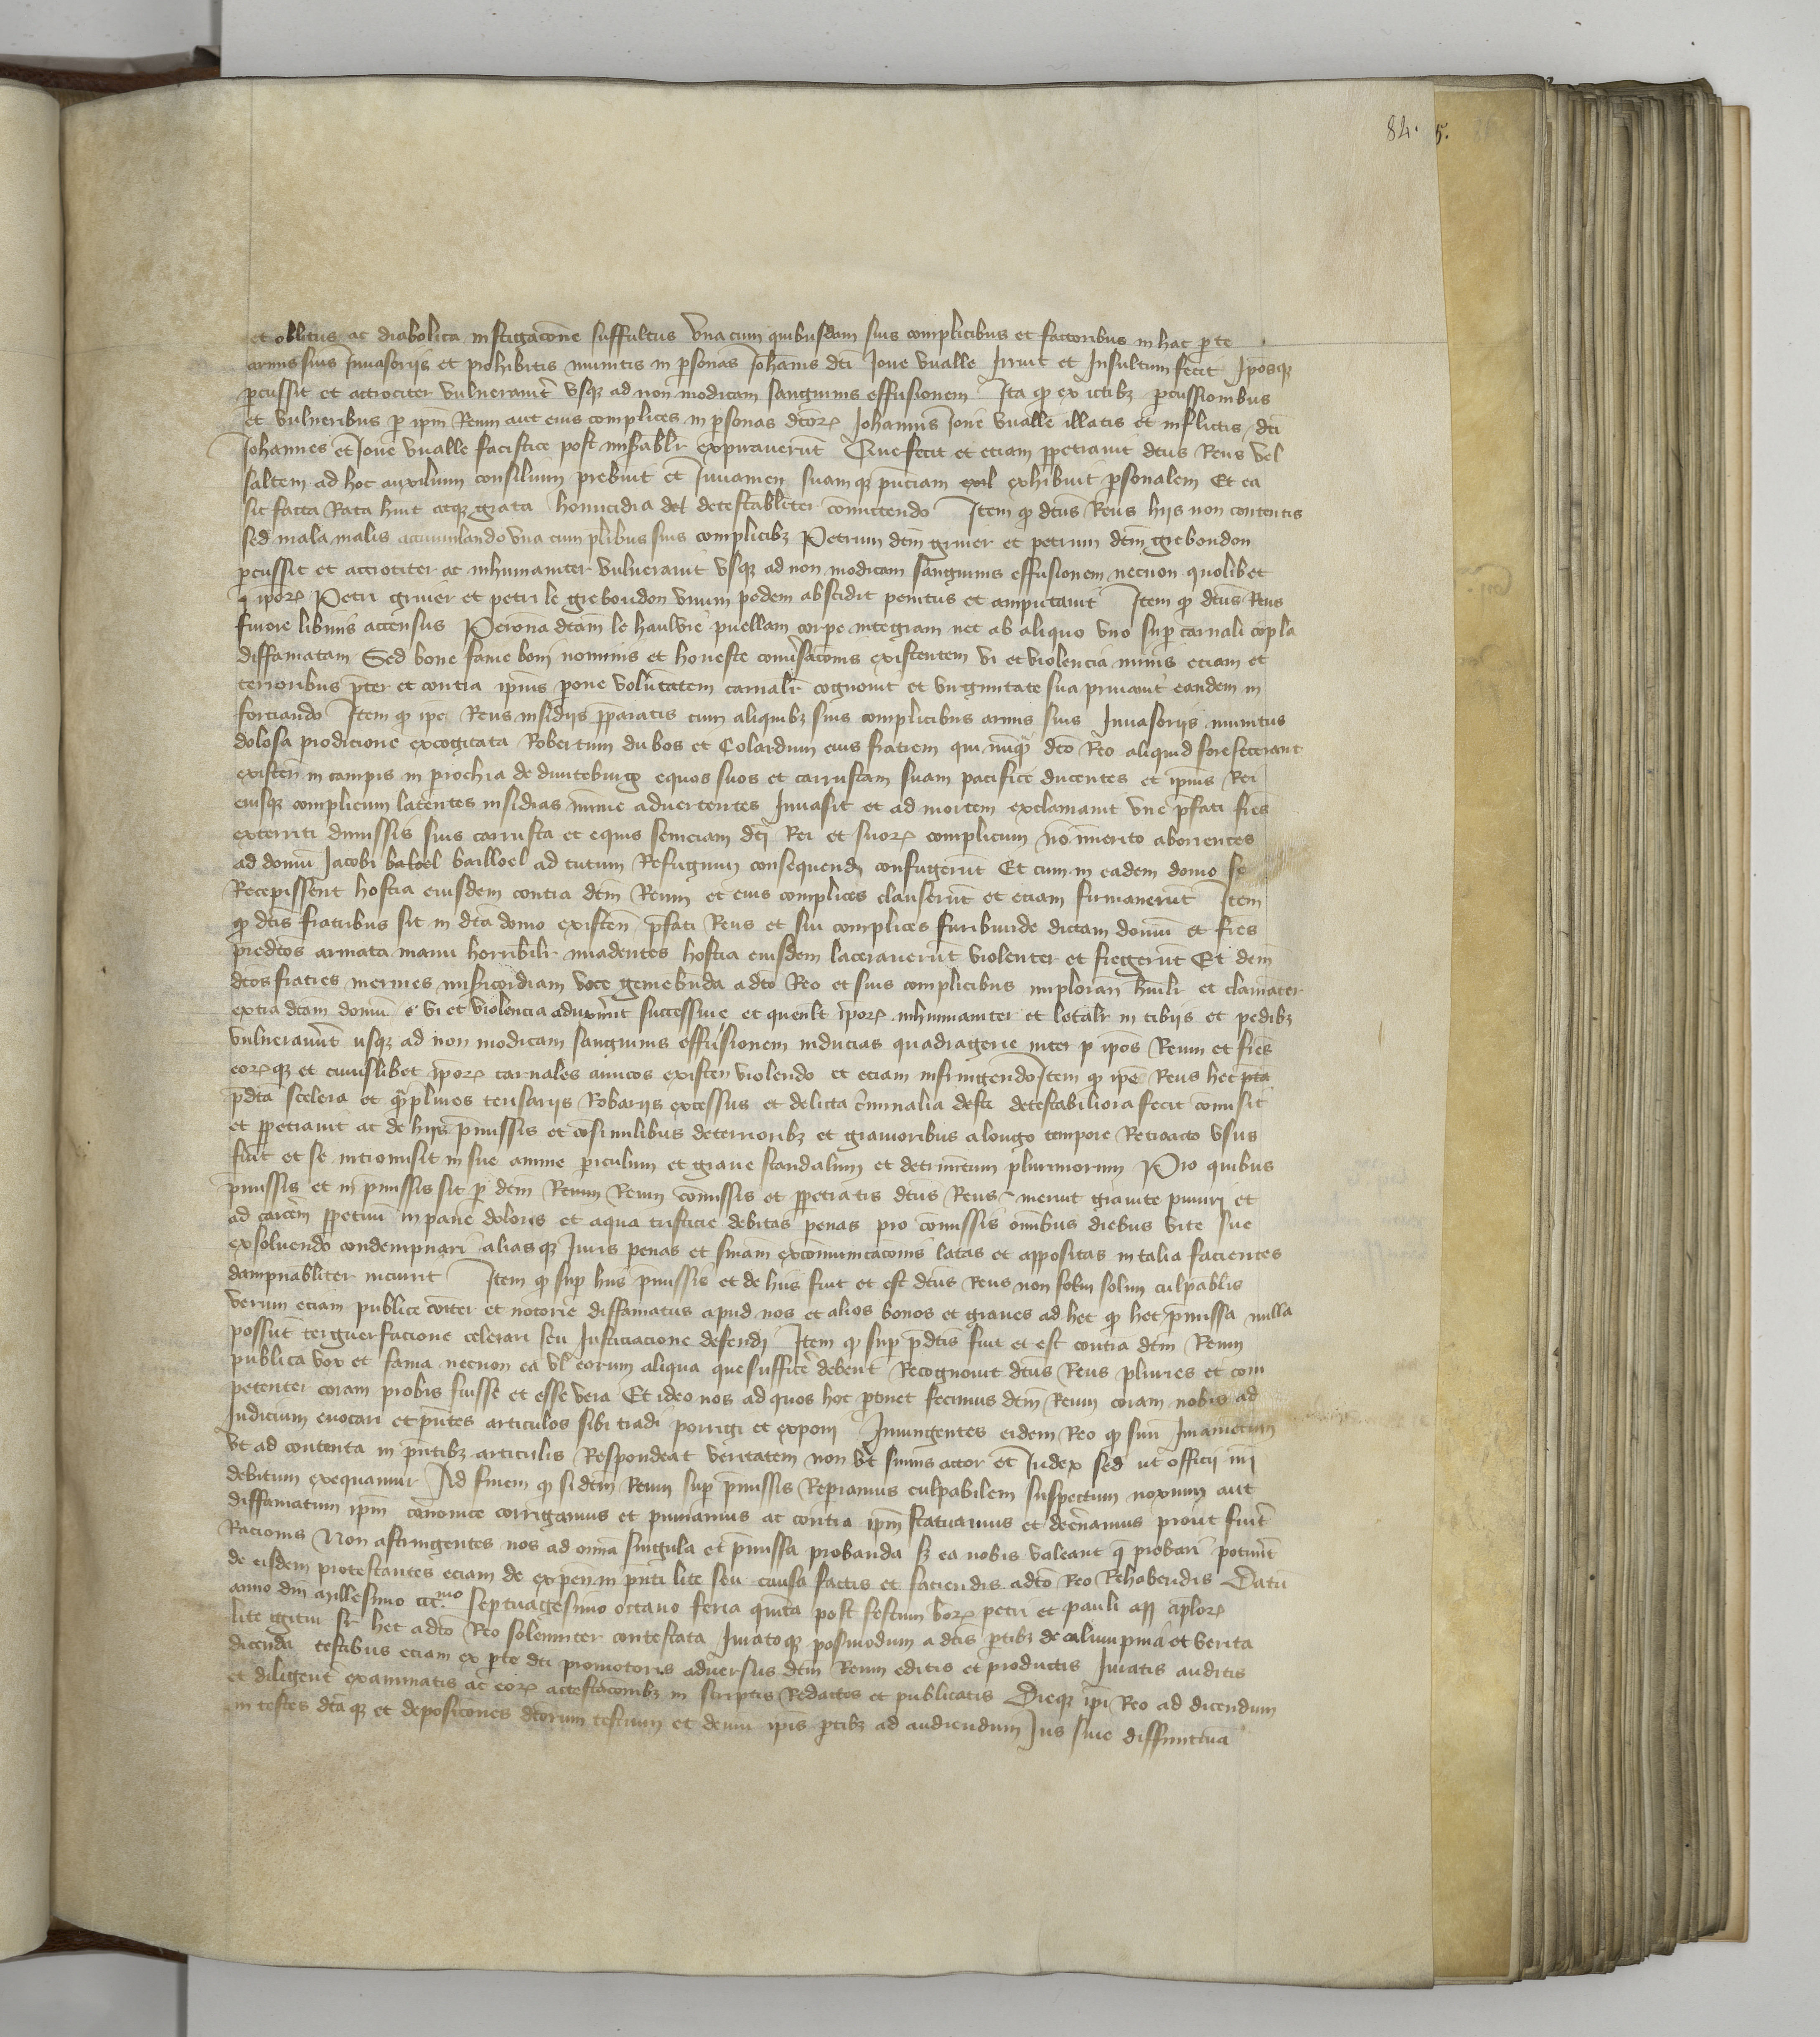 84. 5.
et oblitus ac diabolica instigacōne suffultus vna cum quibusdam suis complicibus et factoribus in hac pte
armis suis Jnuasoriis et prohibitis munitis in psonas Johānis dc̄i Joue vualle Jrruit et Jnsultum fecit Jpōsqz
pcussit et attrociter vulnerauit vsqz ad non modicam sanguinis effusionem Jta qp ex ictibz pcussionibus
et vulneribus p ipm̄ Reum aut eius complices in psonas dc̄orꝫ Johannis Joue vualle illatis et inflictis dc̄i
Johannes et Joue vualle facistice post mis̄abilr expirauerūt Que fecit et etiam ppetrauit dc̄us Reus vel
saltem ad hoc auxilium consilium prebuit et Juuamen suamqz pn̄ciam exhibuit psonalem Et ea
sic facta Rata huit atqz grata homicidia detestabiliter cōmittendo Jtem qp dc̄us Reus hijs non contentis
sed mala malis accumulando vna cum plibus suis complicibz Petrum dc̄m gruier et petrum dc̄m grebondon
pcussit et attrociter ac inhumaniter vulnerauit vsqz ad non modicam sanguinis effusionem necnon quolibet
ipōrꝫ Petri gruier et petri le grebondon vnum pedem abscidit penitus et amputauit Jtem qp dc̄us Reus
furore libinis accensus Perona dc̄am le hauwie puellam corpe integram nec ab aliquo vno sup carnali copla
diffamatam Sed bone fame boni nominis et honeste conūsacōnis existentem vi et violencia minis etiam et
terroribus pter et contra ipīus pone volūtatem carnalr̄ cognouit et virginitate sua priuauit eandem in
forciando Jtem qp ipe Reus insidijs pparatis cum aliquibz suis complicibus armis suis Jnuasorijs munitus
dolosa prodicione excogitata Robertum du bos et Colardum eius fratrem qui nūqz dc̄o Reo aliquid forefecerant
existen̄ in campis in prochia de dunteburg equos suos et carrucam suam pacifice ducentes et ipīus Rei
eiusqz complicum latentes insidias minime aduertentes Jnuasit et ad mortem exclamauit vn̄e pfati fr̄es
exterriti dimissis suis carruca et equis seuiciam dc̄i Rei et suorꝫ complicum nō inmerito aborrentes
ad domū Jacobi bailloel ad tutum Refugium consequendū confugerūt Et cum in eadem domo se
Recepissent hostia eiusdem contra dc̄m Reum et eius complices clauserūt et etiam firmauerūt Jtem
qp dc̄is fratribus sic in dc̄a domo existen̄ pfati Reus et sui complices furibunde dictam domū et fr̄es
predc̄os armata manu horribilr̄ inuadentes hostia eiusdem lacerauerūt violenter et fregerūt Et dem̄
dc̄os fratres inermes misericordiam voce gemebūda a dc̄o Reo et suis complicibus imploran̄ hūilr et clamāter
extra dc̄am domū vi et violencia aduxerūt successiue et quenlt ipōrꝫ inhumaniter et letalr̄ in tibijs et pedibz
vulnerauūt usqz ad non modicam sanguinis effusionem inducias quadragene inter p ipōs Reum et fr̄es
eorꝫqz et cuiuslibet ipōrꝫ carnales amicos existen̄ violendo et etiam infringendo Jtem qp ipe Reus hec
pdc̄a scelera et qplures tensarijs Robarijs excessus et delicta c̄minalia detestabiliora fecit comisit
et ppetrauit ac de hijs pmissis et cōsimilibus deterioribz et grauioribus a longo tempore Retroacto vsus
fuit et se intromisit in sue anime piculum et graue scandalum et detrim̄tum plurimorum Pro quibus
pmissis et in pmissis sic p dc̄m Reum Reum cōmissis et ppetratis dc̄us Reus meruit grauite puniri et
ad carcem ppetuū in pane doloris et aqua tristicie debitas penas pro cōmissis omībus diebus vite sue
exsoluendo condempnari aliasqz Juris penas et sniam excōmunicacōnis latas et appositas in talia facientes
dampnabliter incurrit Jtem qp sup hiis pmissis et de hiis fuit et est dc̄us Reus non solum culpablis
verum etiam publice cōiter et notorie diffamatus apud nos et alios bonos et graues ad hec qp hec pmissa nulla
possūt terguersacione celerari seu Justiciacione defendi Jtem qp sup pdc̄is fuit et est contra dc̄m Reum
publica vox et fama necnon ea vl eorum aliqua que sufficē debent Recognouit dc̄us Reus plures et com
petenter coram probis fuisse et esse vera Et ideo nos ad quos hoc ptinet fecimus dc̄m Reum coram nobis ad
Judicium euocari et pn̄tes articulos sibi tradi porrigi et exponi Jniungentes eidem Reo qp suū Juramentum
vt ad contenta in pn̄tibz articulis Respondeat veritatem non vt simus actor et Judex sed ut officii nr̄i
debitum exequamur Ad finem qp si dc̄m Reum sup pmissis Repiamus culpabilem suspectum noxium aut
diffamatum ipm̄ canonice corrigamus et puniamus ac contra ipm̄ statuamus et dec̄namus prout fuit
Racionis Non astringentes nos ad omnia singula et pmissa probanda sz ea nobis valeant q probari poterūt
de eisdem protestantes etiam de expen̄ in pn̄ti lite seu causa factis et faciendis a dc̄o Reo Rehabendis Datū
anno dn̄i millesimo ccc.mo septuagesimo octauo feria quīta post festum bōrꝫ petri et pauli apl̄orꝫ
lite igitur sr̄ hec a dc̄o Reo solemniter contestata Juratoqz posmodum a dc̄is ptibz de calumpnia et verita
dicenda testibus etiam ex pte dc̄i promotoris aduersus dc̄m Reum editis et productis Juratis auditis
et diligent̄ examinatis ac eorꝫ attestacōnibz in scriptis Redactos et publicatis Dieqz ipī Reo ad dicendum
in testes dc̄aqz et deposicōnes dc̄orum testium et demū ipīs ptibz ad audiendum Jus siue diffinitiuā